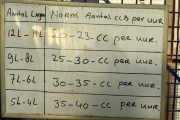 Aantal Lagen Norm Aantal ccb per uur.
12L-11L 20-23-CC per uur.
9L-8L 25-30-CC per uur.
7L-6L 30-35-CC per uur.
5L-4L 35-40-CC per uur.